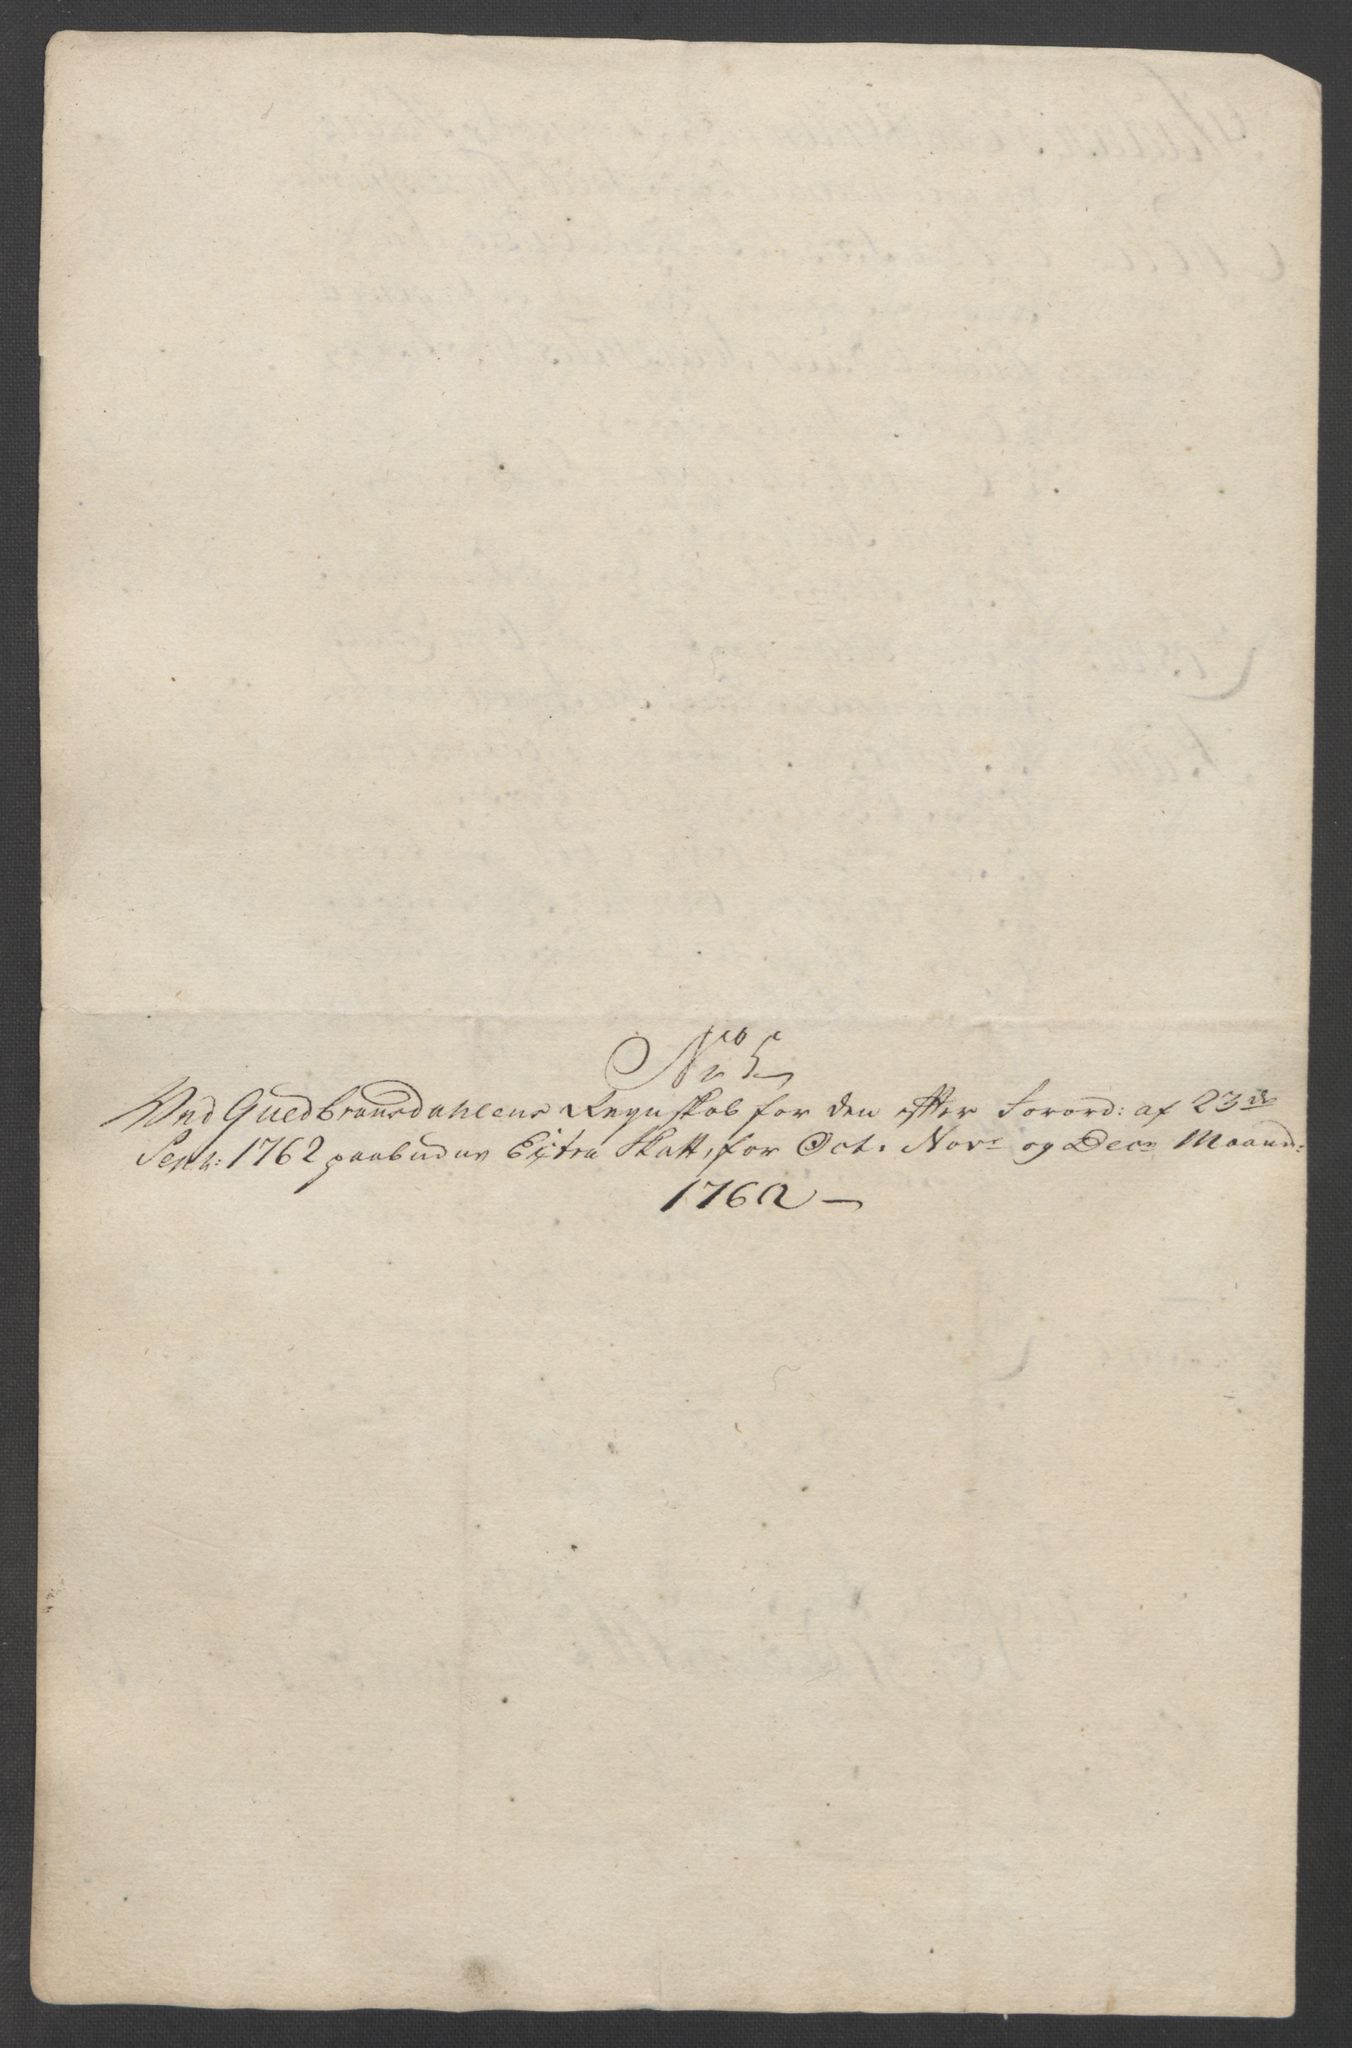 No 5
Ved Guedbransdahlens Regnskab for den efter Forord: af 23de
Septb: 1762 paabudne Extra Skatt, for Oct: Novr og Decr Maaned:
1762